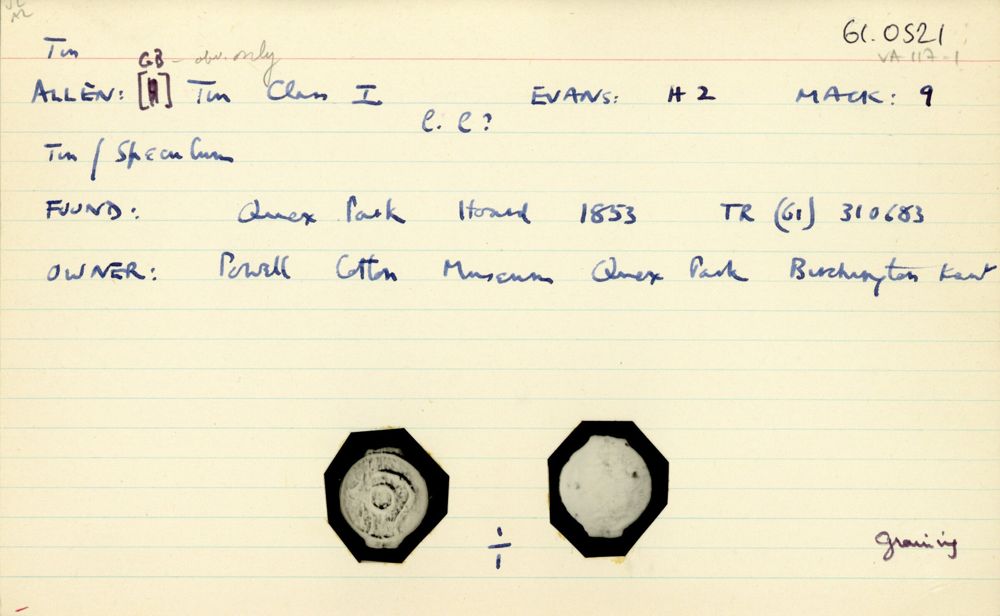 61.0521
Tin
GB - obv. only
VA 117-1
ALLEN: [H] Tin Class I EVANS: H 2 MACK: 9
l. c?
Tin / Speculum
FOUND: Quex Park Hoard 1853 TR (61) 310683
OWNER: Powell Cotton Museum Quex Park Birchington Kent
1/1